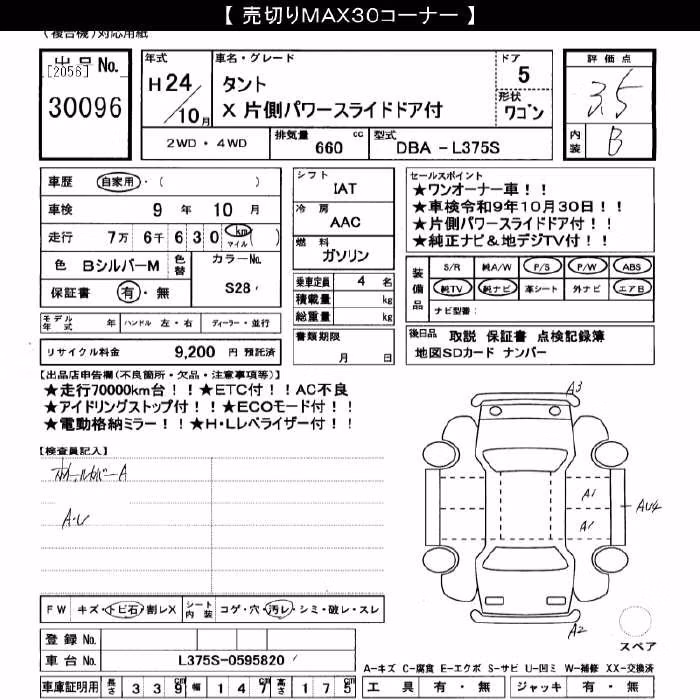 【 売切りMAX30コーナー 】
(複合機)対応用紙
出品 No.
[2056]
30096
年式
H 24
10月
車名・グレード
タント
X 片側パワースライドドア付
ドア
5
形状
ワゴン
評価点
3.5
内装
B
2WD ・ 4WD
排気量
660 cc
型式
DBA - L375S
車歴 自家用・( )
車検 9 年 10 月
走行 7万 6千 6 3 0 km マイル ( )
色 Bシルバー M
色替
カラーNo.
S28
保証書 有・無
シフト
IAT
冷房
AAC
燃料
ガソリン
乗車定員 4 名
積載量 kg
総重量 kg
書類期限
月 日
セールスポイント
★ワンオーナー車！！
★車検令和9年10月30日！！
★片側パワースライドドア付！！
★純正ナビ＆地デジTV付！！
装備品
S/R 純A/W P/S P/W ABS
純TV 純ナビ 革シート 外ナビ エアB
ナビ型番：
モデル年式 年 ハンドル 左・右 ディーラー・並行
リサイクル料金 9,200 円 預託済
後日品 取説 保証書 点検記録簿
地図SDカード ナンバー
【出品店申告欄(不良箇所・欠品・注意事項等)】
★走行70000km台！！★ETC付！！AC不良
★アイドリングストップ付！！★ECOモード付！！
★電動格納ミラー！！★H・Lレベライザー付！！
【検査員記入】
A・U
A3
A1
A1
AU4
A2
スペア
FW キズ・トビ石・割レX
シート内装 コゲ・穴・汚レ・シミ・破レ・スレ
登録 No.
車台 No. L375S-0595820
車庫証明用 長さ 3 3 9 cm 幅 1 4 7 cm 高さ 1 7 5 cm
A-キズ C-腐食 E-エクボ S-サビ U-凹ミ W-補修 XX-交換済
工具 有・無 ジャッキ 有・無